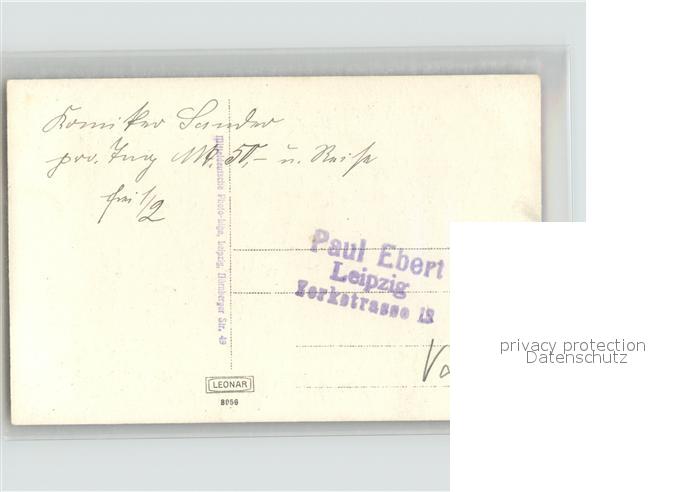 Komiker Sander
pro. Tag Mk. 50,- u. Reise
frei 1/2
Mitteldeutsche Photo-Labo, Leipzig, Nürnberger Str. 49
Paul Ebert
Leipzig
Yorkstrasse 12
LEONAR
8056
privacy protection
Datenschutz